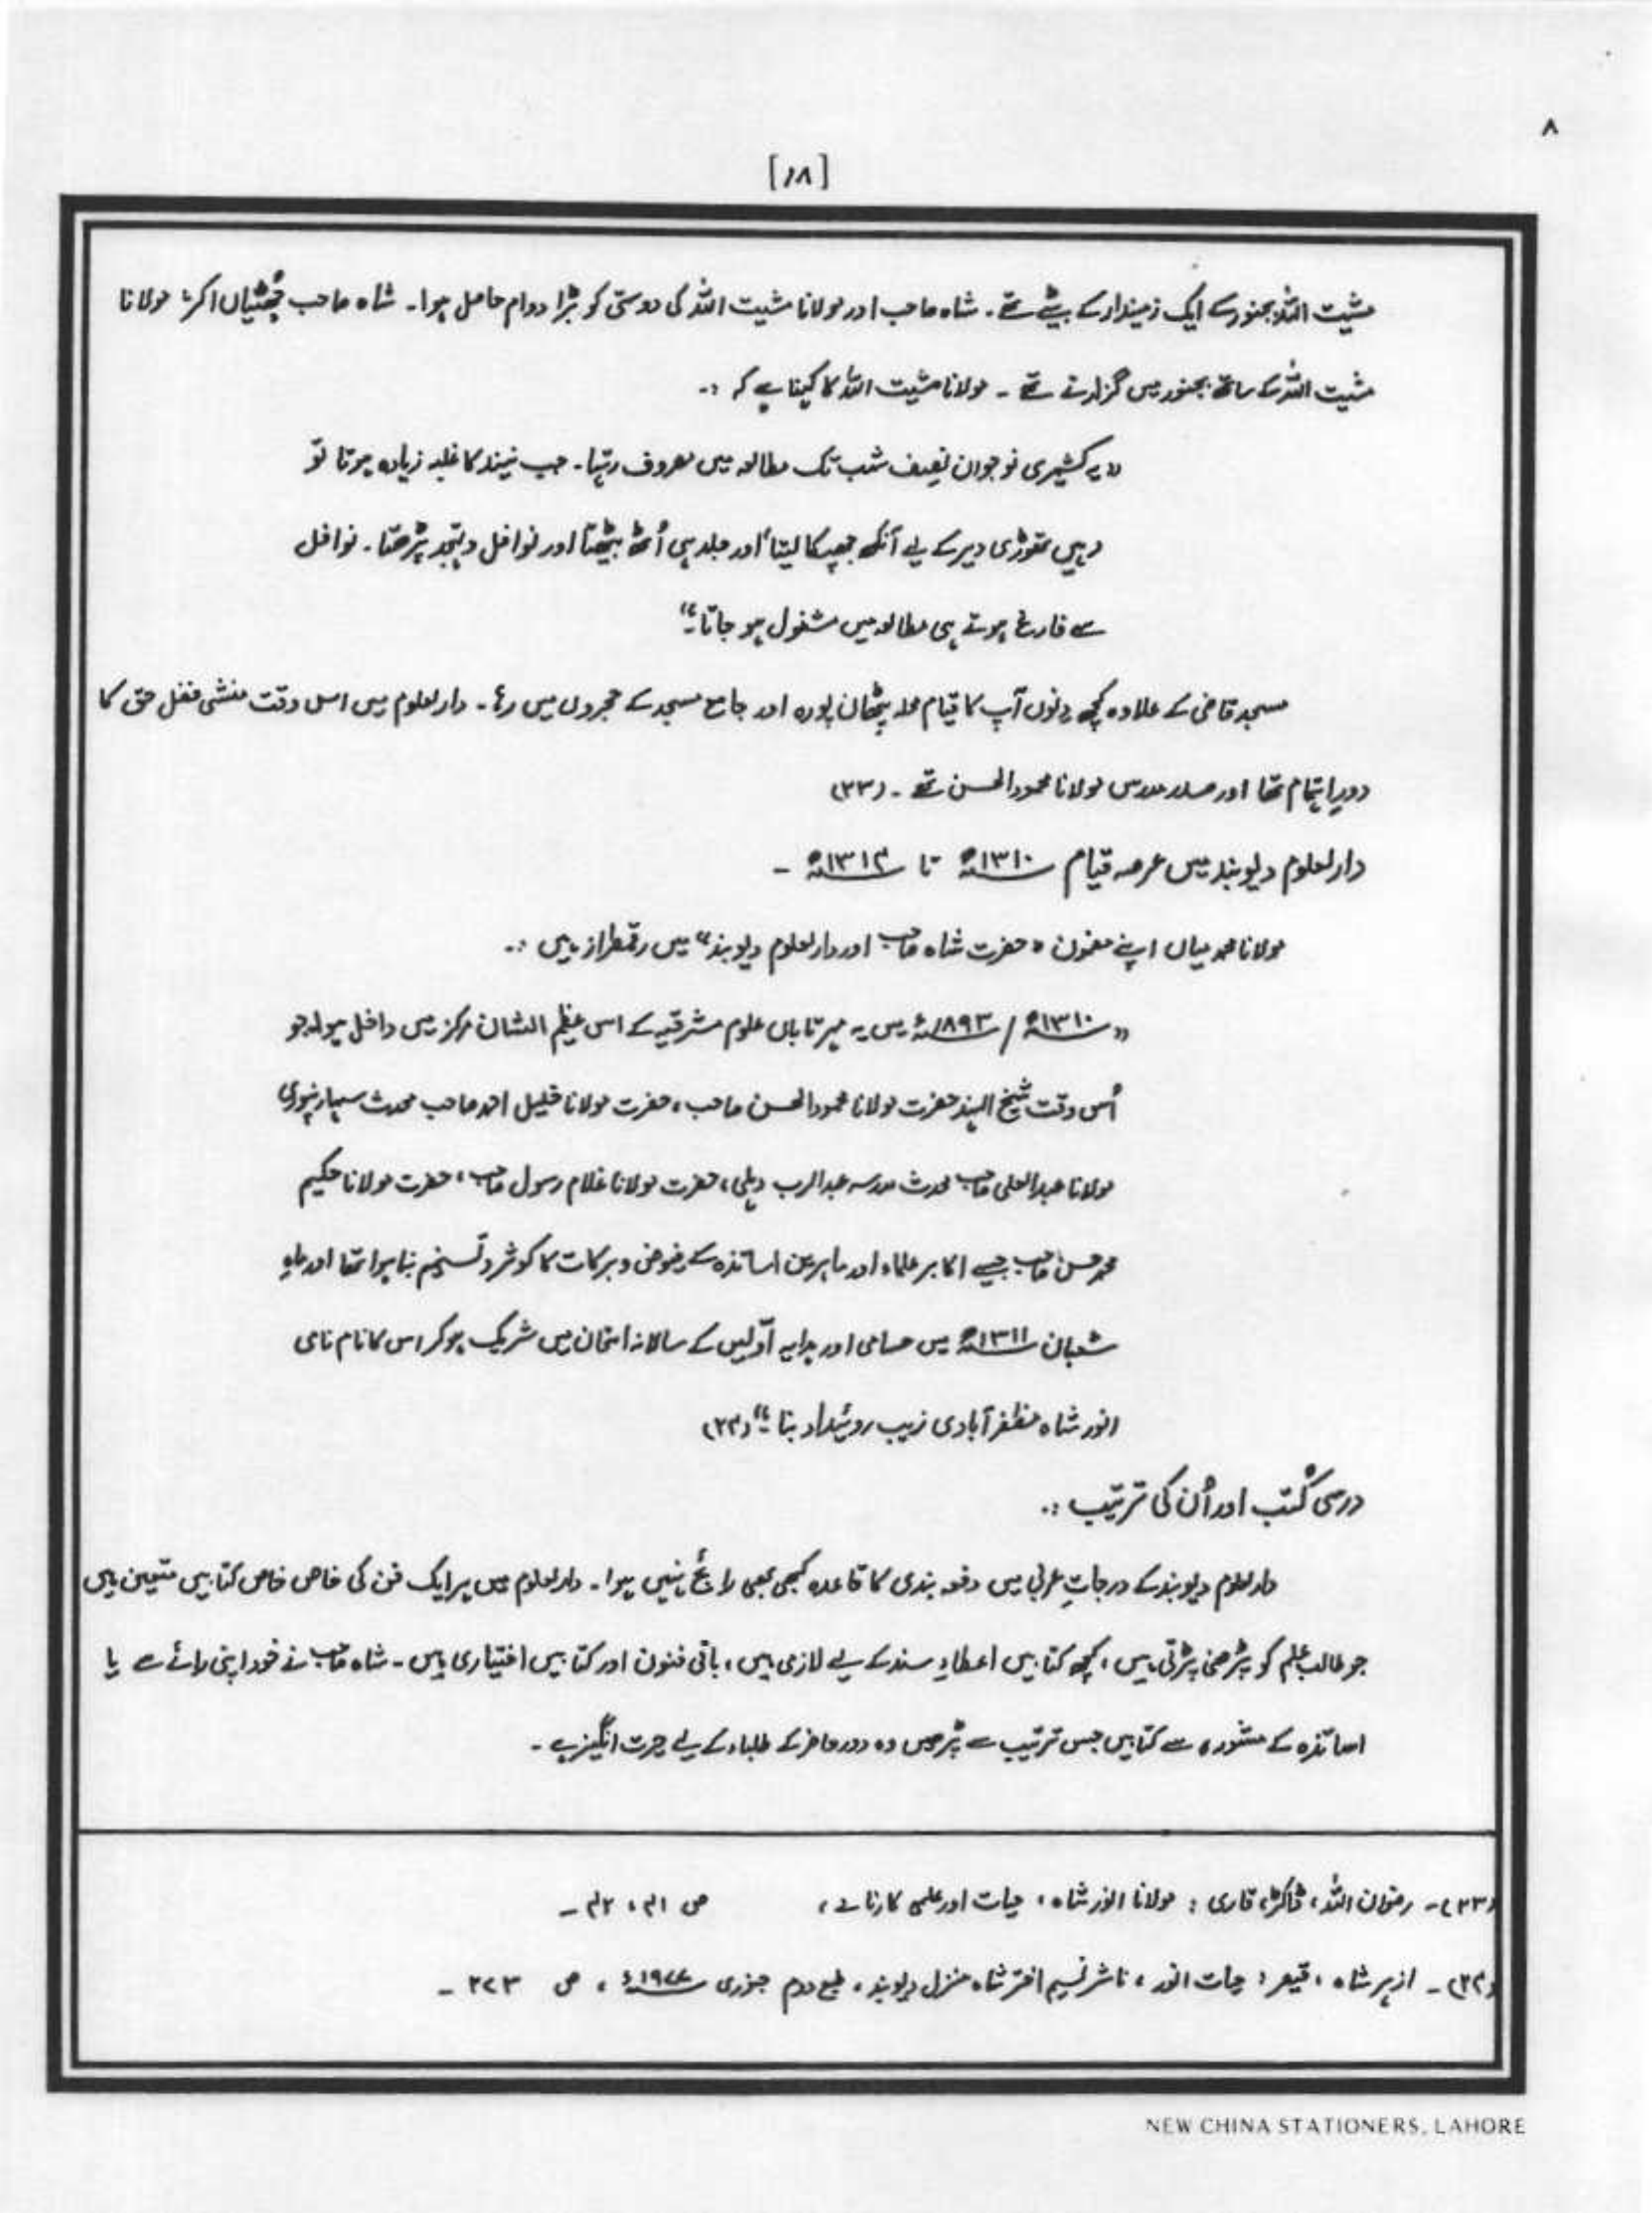 ۸
[۱۸]
مشیت اللہؒ بجنور کے ایک زمیندار کے بیٹے تھے۔ شاہ صاحب اور مولانا مشیت اللہ کی دوستی کو بڑا دوام حاصل ہوا۔ شاہ صاحب چُھٹیاں اکثر مولانا
مشیت اللہؒ کے ساتھ بجنور میں گزارتے تھے ۔ مولانا مشیت اللہ کا کہنا ہے کہ :۔
"یہ کشمیری نوجوان نصیف شب تک مطالعہ میں معروف رہتا۔ جب نیند کا غلبہ زیادہ ہوتا تو
وہیں تھوڑی دیر کے لیے آنکھ جھپکا لیتا اور جلد ہی اُٹھ بیٹھتا اور نوافل و تہجد پڑھتا۔ نوافل
سے فارغ ہوتے ہی مطالعہ میں مشغول ہو جاتا۔"
مسجد قاضی کے علاوہ کچھ دنوں آپ کا قیام محلہ پٹھان پورہ اور جامع مسجد کے حجروں میں رہا۔ دارلعلوم میں اس وقت منشی فضل حق کا
دورِ اہتمام تھا اور صدر مدرس مولانا محمود الحسن تھے ۔(۲۳)
دارلعلوم دیوبند میں عرصہ قیام ۱۳۱۰ھ تا ۱۳۱۴ھ ۔
مولانا محمد میاں اپنے مضمون "حضرت شاہ صاحب اور دارلعلوم دیوبند" میں رقمطراز ہیں :۔
"۱۳۱۰ھ / ۱۸۹۳ء میں یہ مہر تاباں علوم مشرقیہ کے اس عظیم الشان مرکز میں داخل ہوا۔ جو
اُس وقت شیخ الہند حضرت مولانا محمود الحسن صاحب، حضرت مولانا خلیل احمد صاحب محدث سہارنپوری
مولانا عبدالعلی صاحب محدث مدرسہ عبدالرب دہلی، حضرت مولانا غلام رسول صاحب، حضرت مولانا حکیم
محمد حسن صاحب جیسے اکابر علماء اور ماہرین اساتذہ کے فیوض و برکات کا کوثر و تسنیم بنا ہوا تھا اور ماہِ
شعبان ۱۳۱۱ھ میں حسامی اور ہدایہ اوّلین کے سالانہ امتحان میں شریک ہو کر اس کا نام نامی
انور شاہ مظفر آبادی زیب روئیداد بنا۔" (۲۴)
درسی کُتب اور اُن کی ترتیب :۔
دارلعلوم دیوبند کے درجاتِ عربی میں دفعہ بندی کا قاعدہ کبھی بھی رائج نہیں ہوا۔ دارلعلوم میں ہر ایک فن کی خاص خاص کتابیں متعین ہیں
جو طالب علم کو پڑھنی پڑتی ہیں، کچھ کتابیں اعطاءِ سند کے لیے لازمی ہیں، باقی فنون اور کتابیں اختیاری ہیں۔ شاہ صاحب نے خود اپنی رائے سے یا
اساتذہ کے مشورہ سے کتابیں جس ترتیب سے پڑھیں وہ دور حاضر کے طلباء کے لیے حیرت انگیز ہے ۔
(۲۳)۔ رضوان اللہ، ڈاکٹر، قاری : مولانا انور شاہ، حیات اور علمی کارنامے، ص ۴۱، ۴۲ ۔
(۲۴)۔ ازہر شاہ، قیصر : حیات انور، ناشر نسیم اختر شاہ منزل دیوبند، طبع دوم جنوری ۱۹۷۷ء، ص ۲۲۳ ۔
NEW CHINA STATIONERS, LAHORE